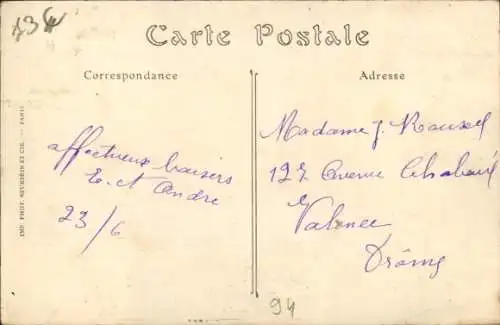 Carte Postale
Correspondance
Adresse
affectueux baisers
E. et Andre
23/6
Madame J.
127 Avenue
Valence
Drôme
94
IMP. PHOT. NEURDEIN ET CIE. — PARIS